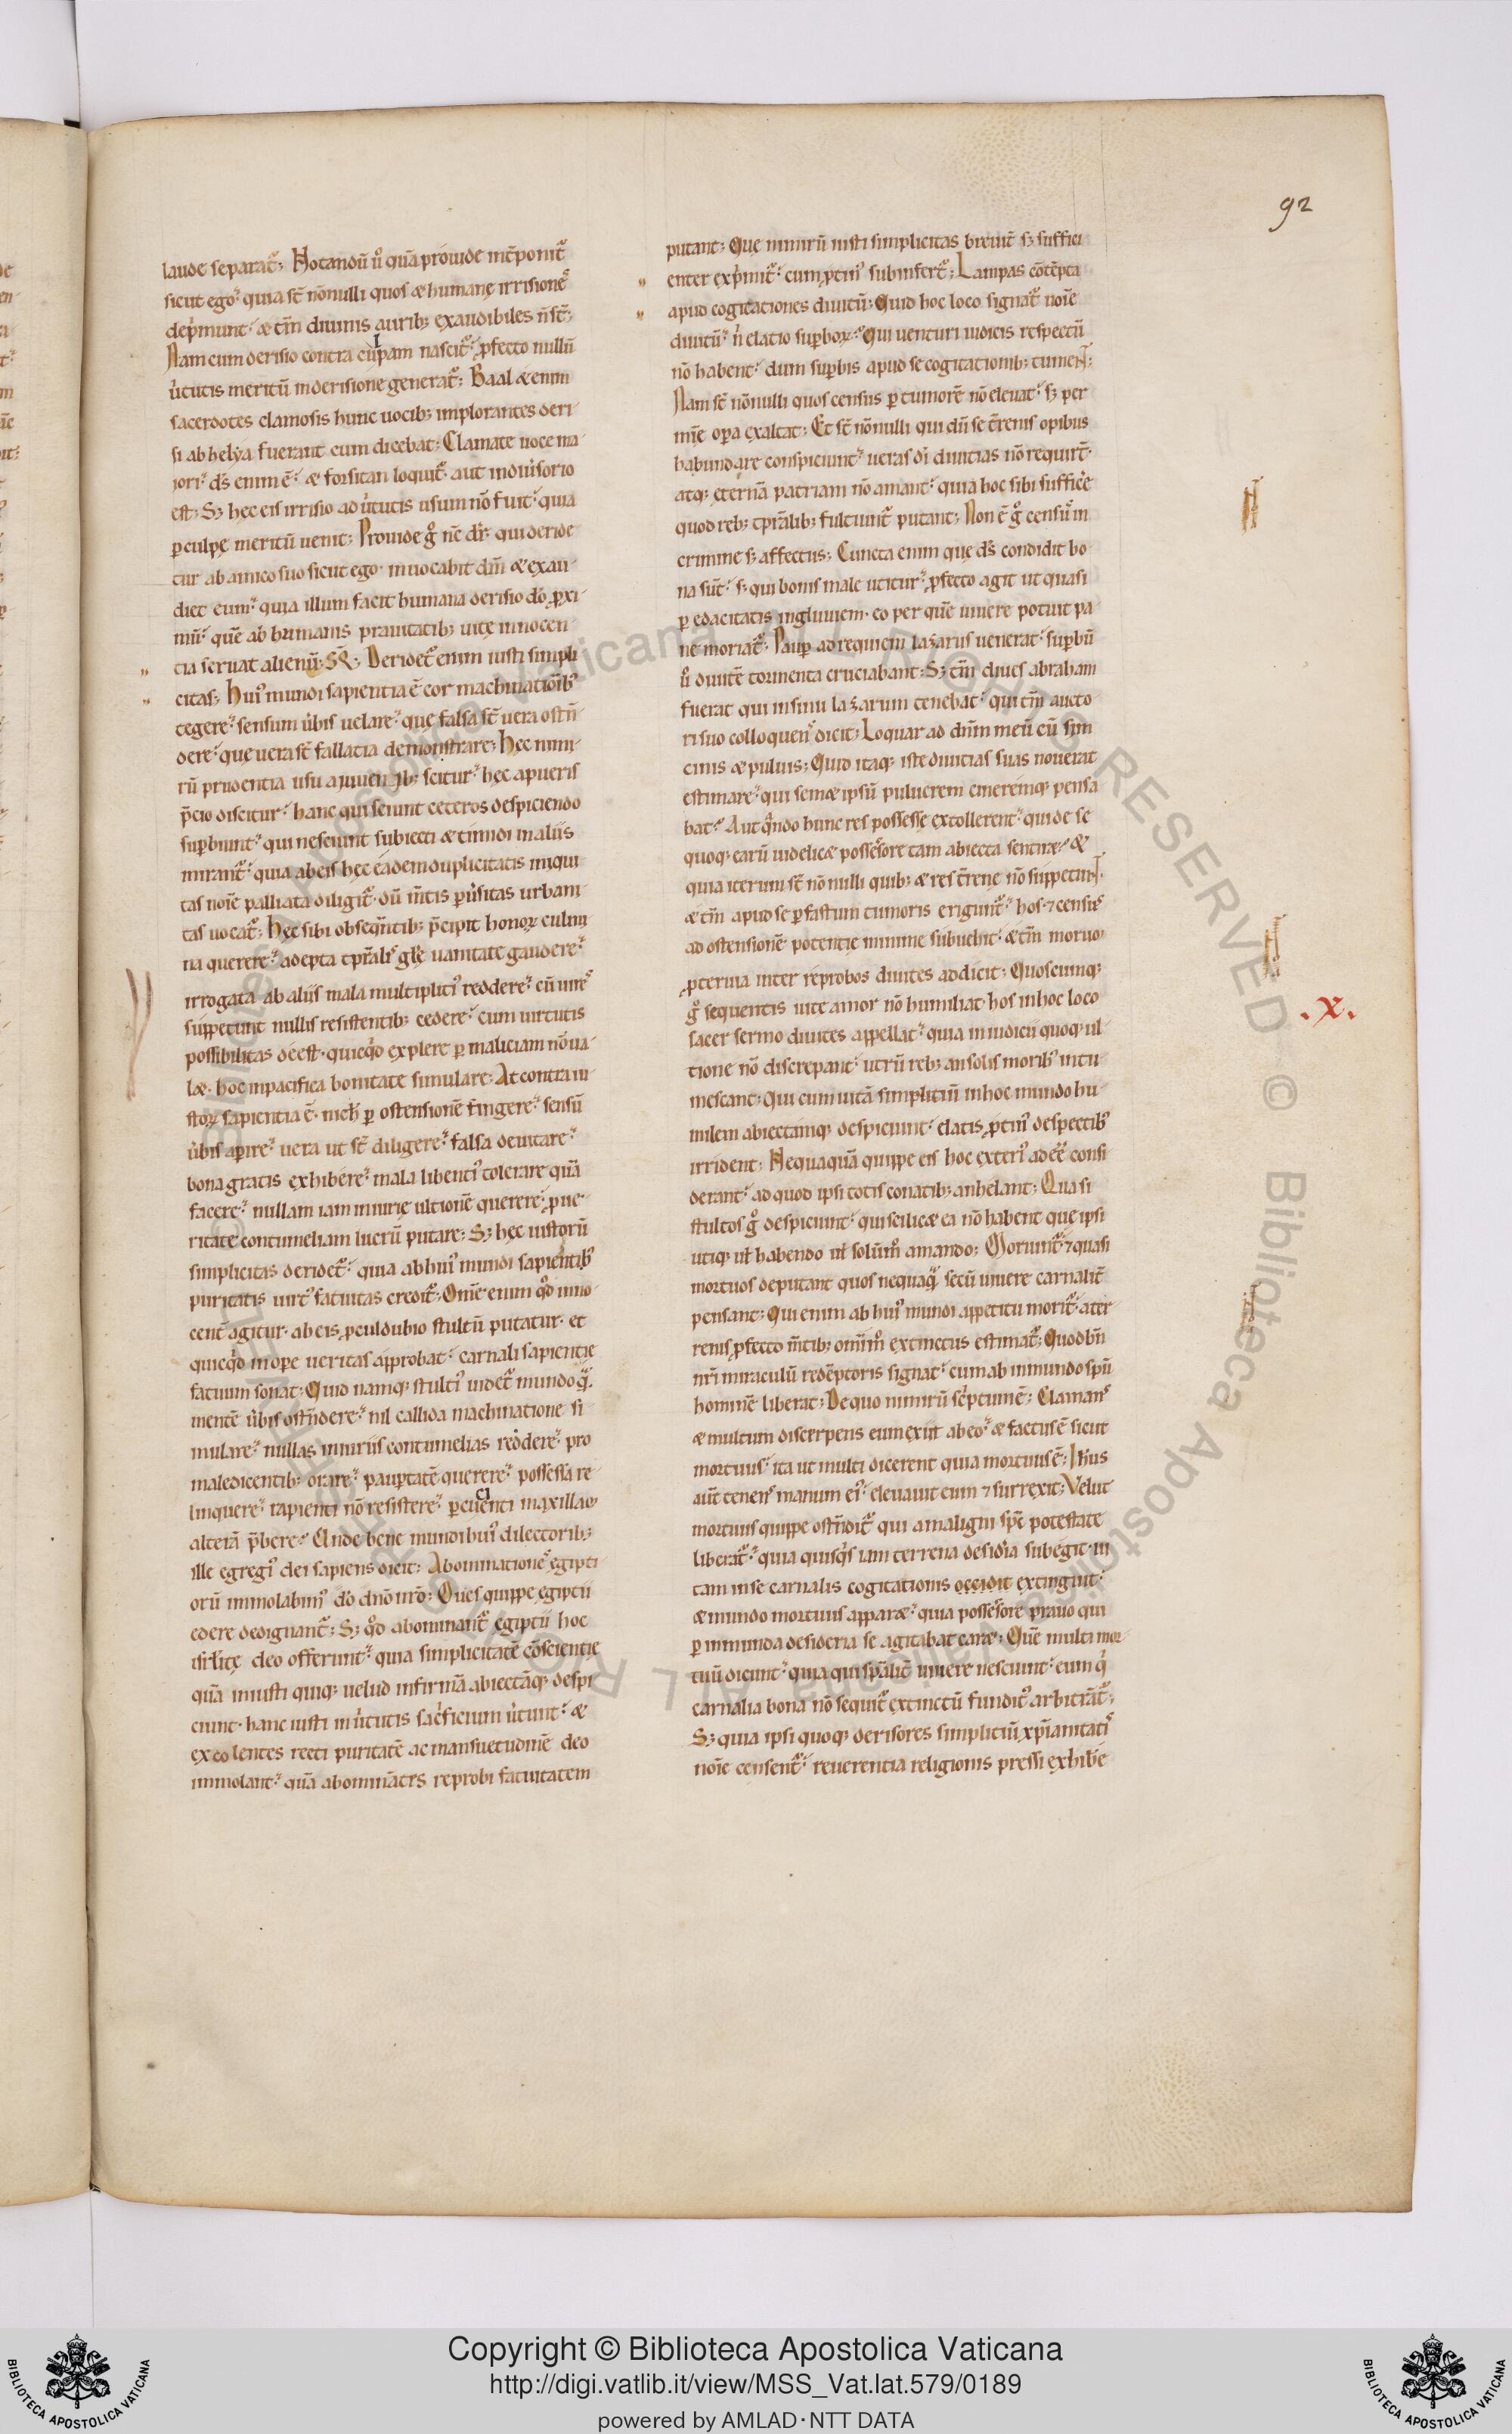 92
laude separat᷑; Notandũ ů quã prouide int̃ponit᷑
sicut ego? quia st̃ nõnulli quos & humanę irrisionẽs
dep̃munt. & tm̃ diuinis aurib; exaudibiles ñ st̃;
Nam cum derisio contra culpam nascit᷑. ꝓfecto nullũ
uirtutis meritũ in derisione generat᷑; Baal &enim
sacerdotes clamosis hunc uocib; implorantes deri
si ab helya fuerant cum dicebat; Clamate uoce ma
iori. ds̃ enim ẽ. & forsitan loquit᷑. aut in diuersorio
est; S; hęc eis irrisio ad uirtutis usum nõ fuit. quia
ꝑ culpę meritũ uenit; Prouide g̊ nc̃ dr̃. qui deride
tur ab amico suo sicut ego. inuocabit dm̃ & exau
diet eum. quia illum facit humana derisio dõ ꝓxi
mũ. quẽ ab humanis prauitatib; uitę innocen
tia seruat alienũ; SQ̃; Deridet᷑ enim iusti simpli
citas; Hui᷒ mundi sapientia ẽ cor machinationib᷒
tegere. sensum uerbis uelare. quę falsa st̃ uera ostẽn
dere. quę uera st̃ fallacia demonstrare; Hęc nimi
rũ prudentia usu a iuuenib; scitur. hęc a pueris
p̃cio discitur. hanc qui sciunt ceteros despiciendo
suꝑbiunt. qui nesciunt subiecti & timidi in aliis
mirant᷑. quia ab eis hęc eadem duplicitatis iniqui
tas noĩe palliata diligit᷑. dũ m̃tis ꝑuersitas urbani
tas uocat᷑; Hęc sibi obseq̃ntib; p̃cipit honoꝝ culmi
na querere. adepta tp̃ralis glę uanitate gaudere.
irrogata ab aliis mala multiplici᷒ reddere. cũ uires
suppetunt nullis resistentib; cedere. cum uirtutis
possibilitas deest. quicq̃d explere ꝑ maliciam nõ ua
l&. hoc in pacifica bonitate simulare; At contra iu
stoꝝ sapientia ẽ. nich̃ ꝑ ostensionẽ fingere. sensũ
uerbis aꝑire. uera ut st̃ diligere. falsa deuitare.
bona gratis exhibere. mala libenti᷒ tolerare quã
facere. nullam iam iniurię ultionẽ querere. ꝓ ue
ritate contumeliam lucrũ putare; S; hęc iustorũ
simplicitas deridet᷑. quia ab hui᷒ mundi sapientib᷒
puritatis uirt᷒ fatuitas credit᷑; Om̃e enim qd̃ inno
cent̃ agitur. ab eis ꝓculdubio stultũ putatur. et
quicq̃d in oꝑe ueritas approbat. carnali sapientię
fatuum sonat; Quid namq; stulti᷒ uidet᷑ mundo q̃.
mentẽ uerbis ostẽndere. nil callida machinatione si
mulare. nullas iniuriis contumelias reddere. pro
maledicentib; orare. pauꝑtatẽ querere. possessa re
linquere. rapienti nõ resistere. ꝑcucienti maxillam
alterã p̃bere? Unde bene mundi hui᷒ dilectorib;
ille egregi᷒ dei sapiens dicit; Abominationes egipti
orũ immolabim᷒ dõ dño nr̃o; Oues quippe egiptii
edere dedignant᷑; S; qd̃ abominant᷑ egiptii hoc
isrl̃itę deo offerunt. quia simplicitatẽ cõscientię
quã iniusti quiq; uelud infirmã abiectãq; despi
ciunt. hanc iusti in uirtutis sacrificium uertunt. &
excolentes recti puritatẽ ac mansuetudinẽ deo
immolant. quã abominãtes reprobi fatuitatem
putant; Quę nimirũ iusti simplicitas breuit̃ s; suffici
enter exp̃mit᷑. cum ꝓtin᷒ subinfert᷑; Lampas cõtẽpta
apud cogitationes diuitũ; Quid hoc loco signat᷑ noĩe
diuitũ. ñ elatio suꝑboꝝ? Qui uenturi iudicis respectũ
nõ habent. dum suꝑbis apud se cogitationib; tument;
Nam st̃ nõnulli quos census ꝑ tumorẽ nõ eleuat. s; per
mĩe oꝑa exaltat; Et st̃ nõnulli qui dũ se t̃renis opibus
habundare conspiciunt. ueras dĩ diuitias nõ requirt̃.
atq; eternã patriam nõ amant. quia hoc sibi sufficẽ
quod reb; tp̃ralib; fulciunt᷑ putant; Non ẽ g̊ census in
crimine s; affectus; Cuncta enim quę ds̃ condidit bo
na sũt. s; qui bonis male utitur. ꝓfecto agit ut quasi
ꝑ edacitatis ingluuiem. eo per quẽ uiuere potuit pa
ne moriat᷑; Pauꝑ ad requiem lazarus uenerat. suꝑbũ
ů diuitẽ tormenta cruciabant; S; tm̃ diues abraham
fuerat qui in sinu lazarum tenebat. qui tm̃ aucto
ri suo colloquens dicit; Loquar ad dñm meũ cũ sim
cinis & puluis; Quid itaq; iste diuitias suas nouerat
estimare. qui sem&ipsũ puluerem cineremq; pensa
bat? Aut q̃ndo hunc res possessę extollerent. qui de se
quoq; earũ uidelic& possessore tam abiecta sentir&? &
quia iterum st̃ nõnulli quib; & res t̃renę nõ suppetunt.
& tm̃ apud se ꝑ fastum tumoris erigunt᷑. hos ⁊ census
ad ostensionẽ potentię minime subuehit. & tm̃ morum
ꝓteruia inter reprobos diuites addicit; Quoscumq;
g̊ sequentis uitę amor nõ humiliat. hos in hoc loco
sacer sermo diuites appellat. quia in iudicii quoq; ul
tione nõ discrepant. utrũ reb; an solis morib᷒ intu
mescant; Qui cum uitã simplitiũ in hoc mundo hu
milem abiectamq; despiciunt. elatis ꝓtin᷒ despectib᷒
irrident; Nequaquã quippe eis hoc exteri᷒ adeẽ consi
derant. ad quod ipsi totis conatib; anhelant; Quasi
stultos g̊ despiciunt. qui scilic& ea nõ habent quę ipsi
utiq; ul̃ habendo ul̃ solũm᷒ amando; Moriunt᷑ ⁊ quasi
mortuos deputant quos nequaq̃ secũ uiuere carnalit̃
pensant; Qui enim ab hui᷒ mundi appetitu morit᷑. a ter
renis ꝓfecto m̃tib; omĩm᷒ extinctus estimat᷑; Quod bñ
nr̃i miraculũ redẽptoris signat. cum ab inmundo spũ
hominẽ liberat; De quo nimirũ scriptum ẽ; Clamans
& multum discerpens eum exiit ab eo. & factus ẽ sicut
mortuus. ita ut multi dicerent quia mortuus ẽ; Ihus
aut̃ tenens manum ei᷒. eleuauit eum ⁊ surrexit; Velut
mortuus quippe ostẽndit᷑ qui a maligni sps̃ potestate
liberat᷑. quia quisq̃s iam terrena desid̃ia subegit. ui
tam in se carnalis cogitationis occidit extinguit.
& mundo mortuus appar&. quia possessore prauo qui
ꝑ inmunda desideria se agitabat car&; Quẽ multi mor
tuũ dicunt. quia qui spãlit̃ uiuere nesciunt. eum q̃
carnalia bona nõ sequit᷑ extinctũ fundit᷒ arbitrãt᷑;
S; quia ipsi quoq; derisores simplicium xp̃ianitatis
noĩe censent᷑. reuerentia religionis pressi exhibẽ
.x.
BIBLIOTECA APOSTOLICA VATICANA
Copyright © Biblioteca Apostolica Vaticana
http://digi.vatlib.it/view/MSS_Vat.lat.579/0189
powered by AMLAD·NTT DATA
BIBLIOTECA APOSTOLICA VATICANA
© Biblioteca Apostolica Vaticana ALL RIGHTS RESERVED © Biblioteca Apostolica Vaticana ALL RIGHTS RESERVED